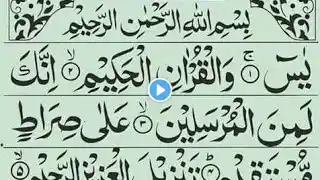 بِسْمِ اللّٰهِ الرَّحْمٰنِ الرَّحِيْمِ
يٰسٓ ۝١ وَالْقُرْاٰنِ الْحَكِيْمِ ۝٢ اِنَّكَ
لَمِنَ الْمُرْسَلِيْنَ ۝٣ عَلٰى صِرَاطٍ
مُّسْتَقِيْمٍ ۝٤ تَنْزِيْلَ الْعَزِيْزِ الرَّحِيْمِ ۝٥